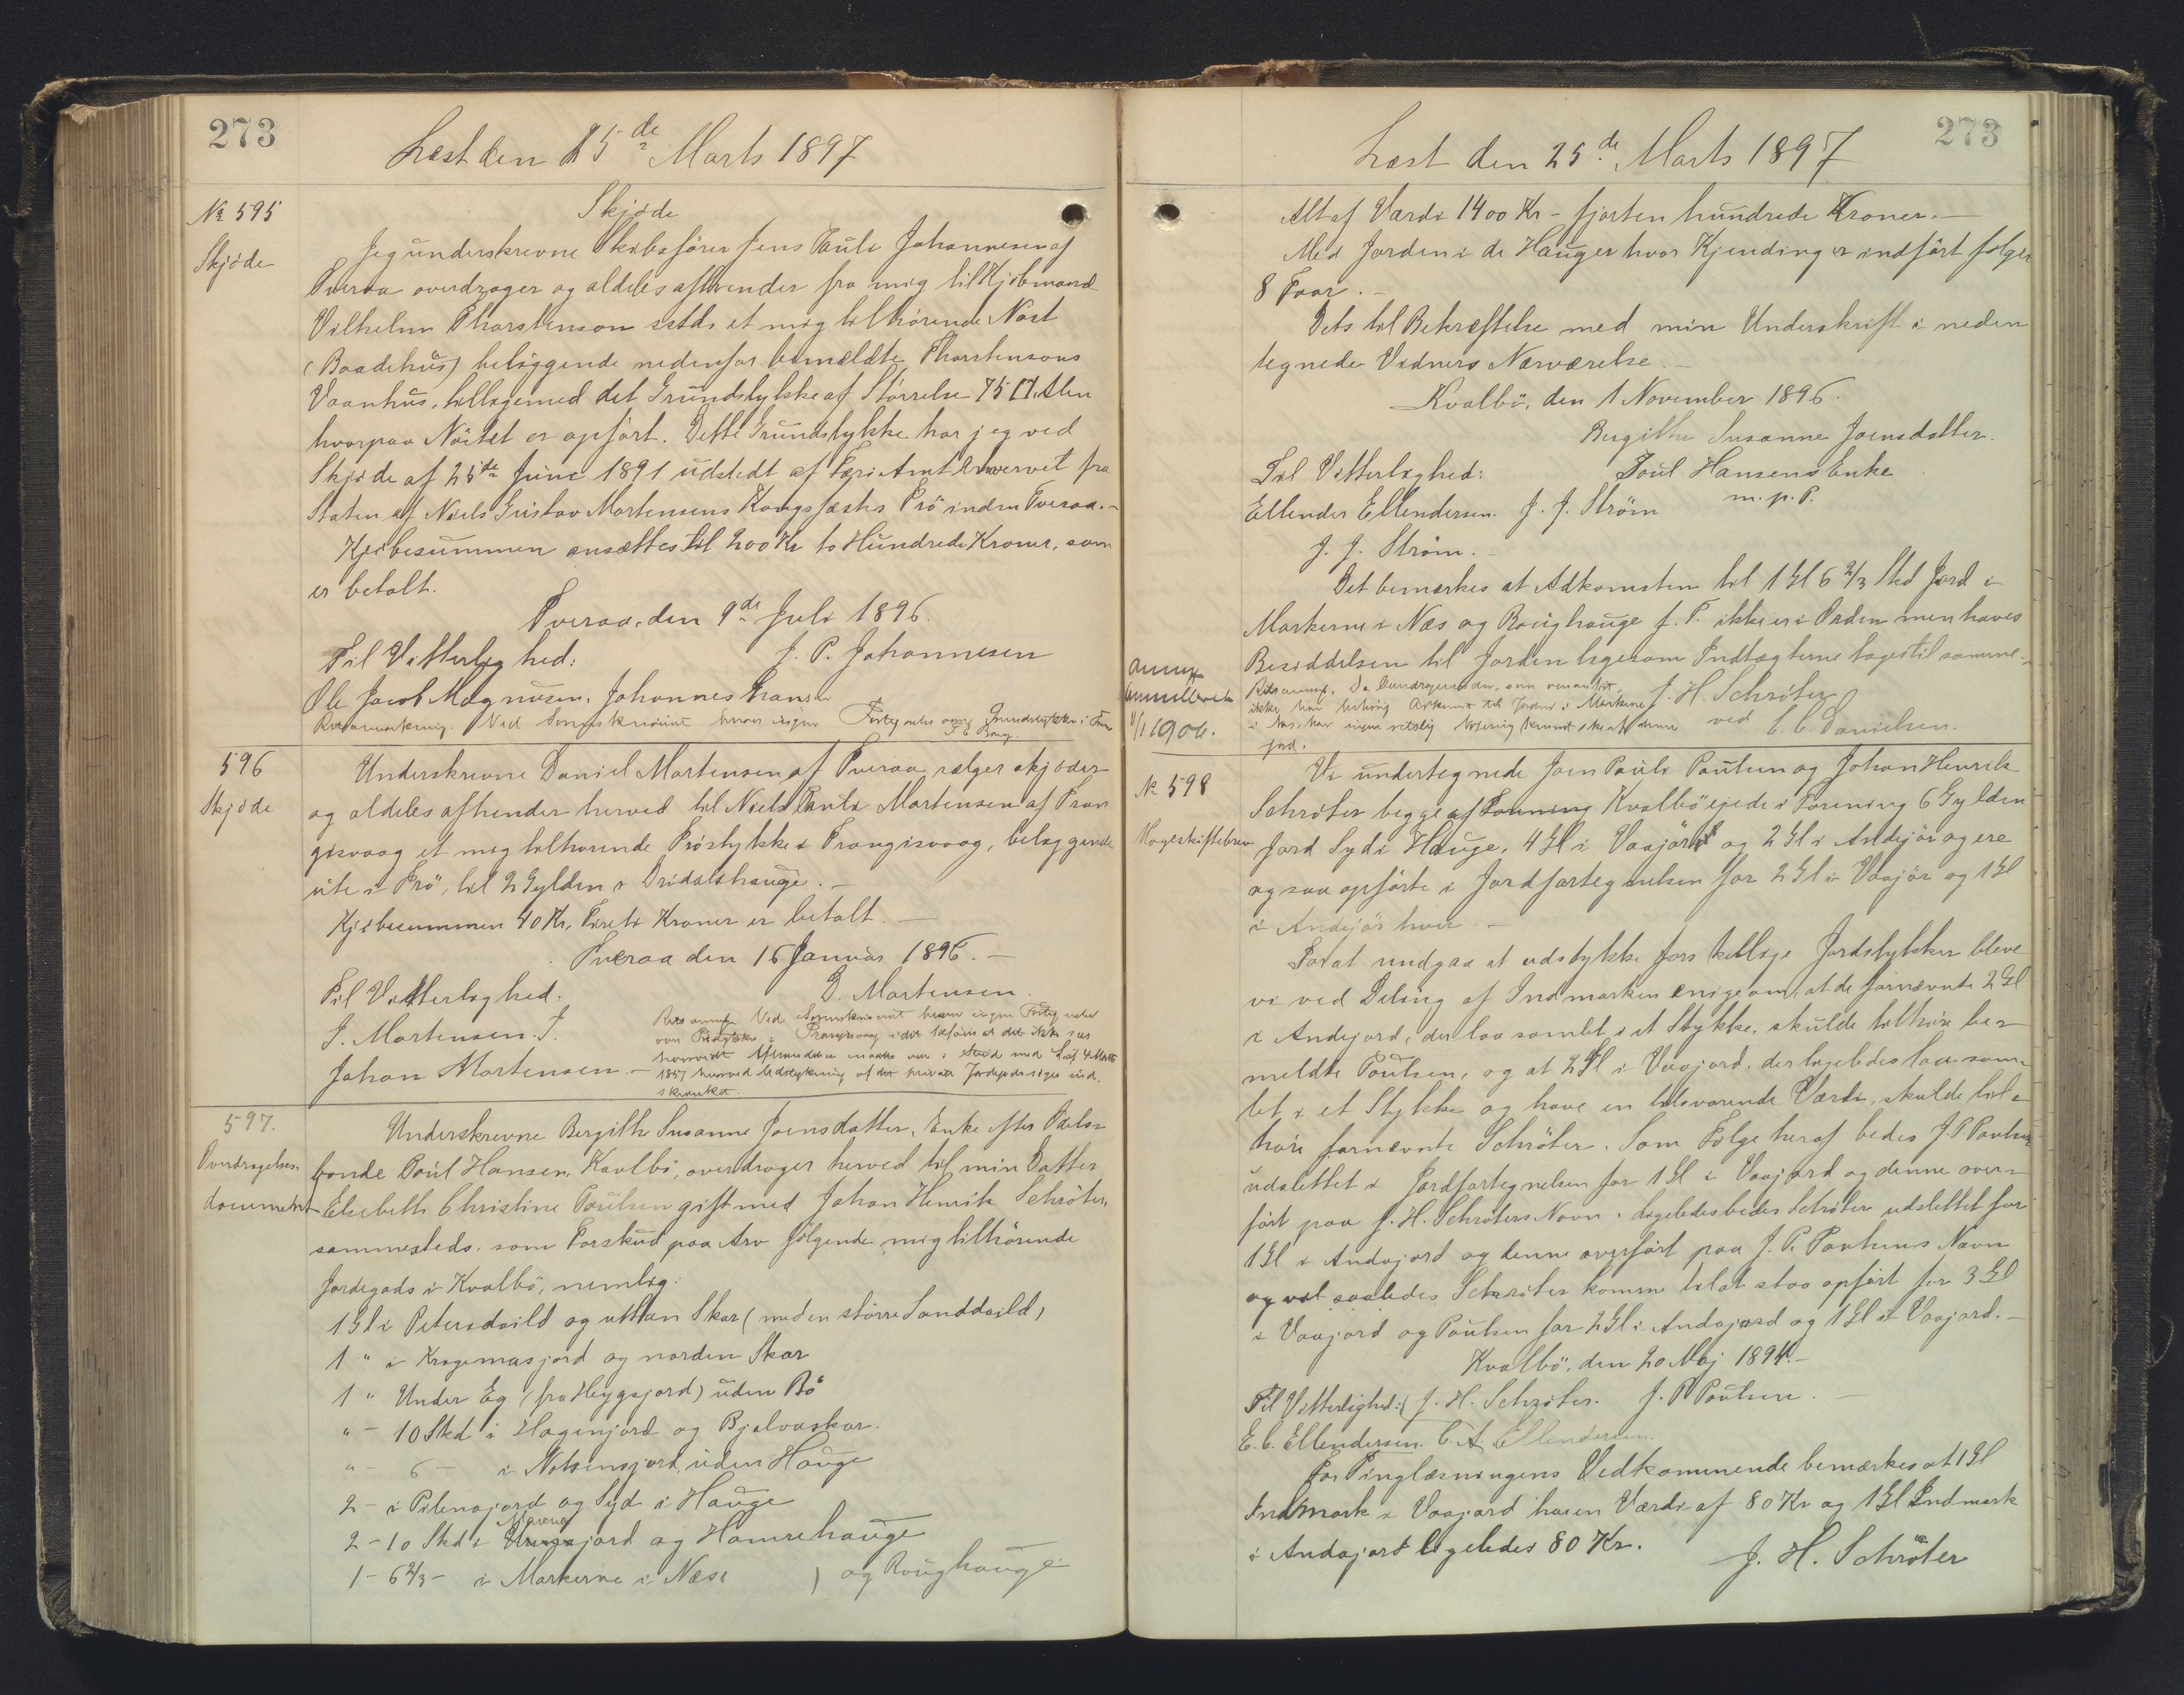 273
Læst den 25de Marts 1897
No 595
Skjöde
Skjöde
Jeg underskrevne Skibsförer Jens Pauli Johannesen af
Tveraa overdrager og aldeles afhænder fra mig til Kjöbmand
Vilhelm Thorstenson sstds et mig tilhörende Nöst
(Baadehus) beliggende nedenfor bemeldte Thorstensons
Vaanhus, tilligemed det Grundstykke af Störrelse 75 □ Alen
hvorpaa Nöstet er opfört. Dette Grundstykke har jeg ved
Skjöde af 25de Juni 1891 udstedt af Færö Amt erhvervet fra
Staten af Niels Gustav Mortensens Kongsfæste Trö inden Tveraa.-
Kjöbesummen ansættes til 200 Kr to Hundrede Kroner, som
er betalt.
Tveraa, den 9de Juli 1896.
Til Vitterlighed: J. P. Johannesen
Ole Jacob Magnusen. Johannes
Retsanmærkning. Ved Sorenskriveriet haves ingen Fortegnelse over Grundstykker i
596
Skjöde
Underskrevne Daniel Mortensen af Tveraa sælger skjöder
og aldeles afhender herved til Niels Pauli Mortensen af Tran
gisvaag et mig tilhörende Tröstykke i Trangisvaag, beliggende
ute i Trö, til 2 Gylden i Dridalshauge.-
Kjöbesummen 40 Kr. Fireti Kroner er betalt.-
Tveraa den 16 Januar 1896.-
Til Vitterlighed. D. Mortensen.
J. Mortensen. J.
Johan Mortensen.-
Rets anmk Ved Sorenskriveriet haves ingen Fortegnelse
over Tröstykker i Trangisvaag idet tilföies at det ikke sees
hvorvidt Afhændelsen maatte være i Strid med Lov 4 Marts
1857 hvorved Udstykning af det private Jordegods siges ind-
skrænket.
597.
Overdragelses-
document
Underskrevne Bergithe Susanne Joensdatter, Enke efter Odels-
bonde Poul Hansen, Kvalbö, overdrager herved til min Datter
Elsebeth Christine Poulsen gift med Johan Henrik Schröter,
sammesteds, som Forskud paa Arv fölgende mig tilhörende
Jordegods i Kvalbö, nemlig:
1 Gl i Petersdeild og uttan Skar (med en större Sanddeild)
1 " i Kragemasjord og norden Skar
1 " Under Eg (fra Heygsjord) uden Bö
" - 10 Skd i Hagenjord og Bjalvaskar.
" - 6 - i Notsensjord, uden Hauge
2 - i Pilenajord og Syd i Hauge
2 - 10 Skd i jord og Hamrehauge
1 - 6 2/3 - i Markerne i Næs ) og Roughauge
273
Læst den 25de Marts 1897
Alt af Værdi 1400 Kr - fjorten hundrede Kroner.-
Med Jorden i de Hauger hvor Kjending er indfört fölger
8 Faar.-
Dets til Bekræftelse med min Underskrift i neden
tegnede Vidners Nærværelse.-
Kvalbö, den 1 November 1896.
Bergithe Susanne Joensdatter.
Til Vitterlighed: Poul Hansens Enke
Ellender Ellendersen. J. J. Ström m. p. P.
J. J. Ström.-
Det bemærkes at Adkomsten til 1 Gl 6 2/3 Skd Jord i
Markerne i Næs og Roughauge f. T. ikke er i Orden men haves
Besiddelsen til Jorden ligesom Indtægterne tages til samme.-
Anmk
annulleret
1/1 1906.
Retsanmk. Da Overdragerinden, som ovenanfört,
ikke har lovlig Adkomst til Jorden i Markerne
i Næs, kan ingen retslig Notering kunne ske af denne
jord.
J. H. Schröter
ved C. C. Danielsen.
No 598
Mageskiftebrev
Vi undertegnede Joen Pauli Poulsen og Johan Henrik
Schröter begge af Kvalbö ejede i Forening 6 Gylden
Jord Syd i Hauge, 4 Gl i Vaajörd og 2 Gl i Andejör og ere
ogsaa opförte i Jordfortegnelsen for 2 Gl i Vaajör og 1 Gl
i Andejör hver.-
For at undgaa at udstykke forskellige Jordstykker bleve
vi ved Deling af Indmarken enige om, at de fornævnte 2 Gl
i Andejord, der laa samlet i et Stykke, skulde tilhöre be-
meldte Poulsen, og at 2 Gl i Vaajord, der ligeledes laa sam-
let i et Stykke og have en tilsvarende Værdi, skulde til-
höre fornævnte Schröter. Som Fölge heraf bedes J. P. Poulsen
udslettet i Jordfortegnelsen for 1 Gl i Vaajord og denne over-
fört paa J. H. Schröters Navn. Ligeledes bedes Schröter udslettet for
1 Gl i Andajord og denne overfört paa J. P. Poulsens Navn
og vil saaledes Schröter komme til at staa opfört for 3 Gl
i Vaajord og Poulsen for 2 Gl i Andajord og 1 Gl i Vaajord.-
Kvalbö, den 20 Maj 1894.-
Til Vitterlighed: J. H. Schröter. J. P. Poulsen.-
E. C. Ellendersen. C. A. Ellendersen.
For Tinglæsningens Vedkommende bemærkes at 1 Gl
Indmark i Vaajard har en Værdi af 80 Kr og 1 Gl Indmark
i Andajord ligeledes 80 Kr.
J. H. Schröter